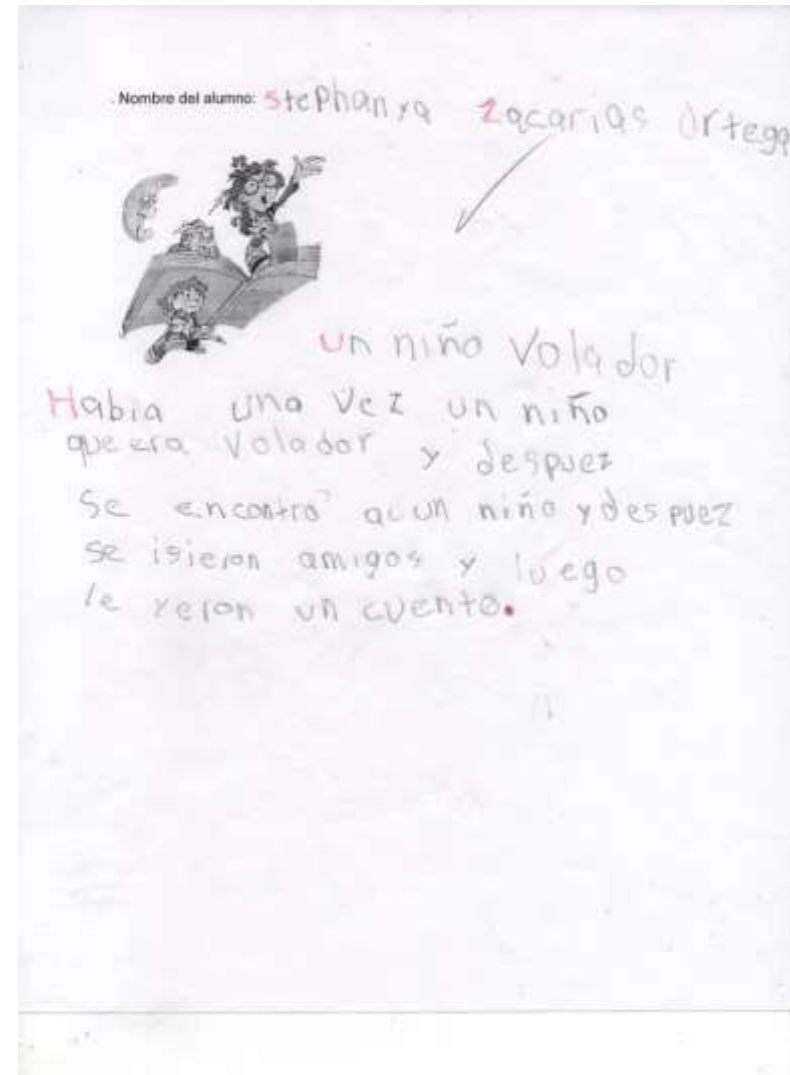 . Nombre del alumno: Stephanya Zacarias Ortega
Un niño Volador
Habia una vez un niño
que era Volador y despuez
se encontro a un niño y despuez
se isieron amigos y luego
le yeron un cuento.